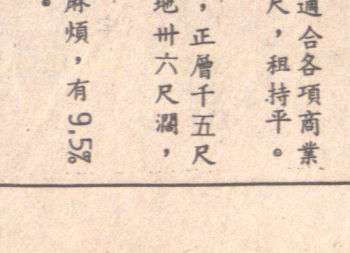 適合各項商業
尺，租持平。
，正層千五尺
地卅六尺濶，
麻煩，有9.5%
。